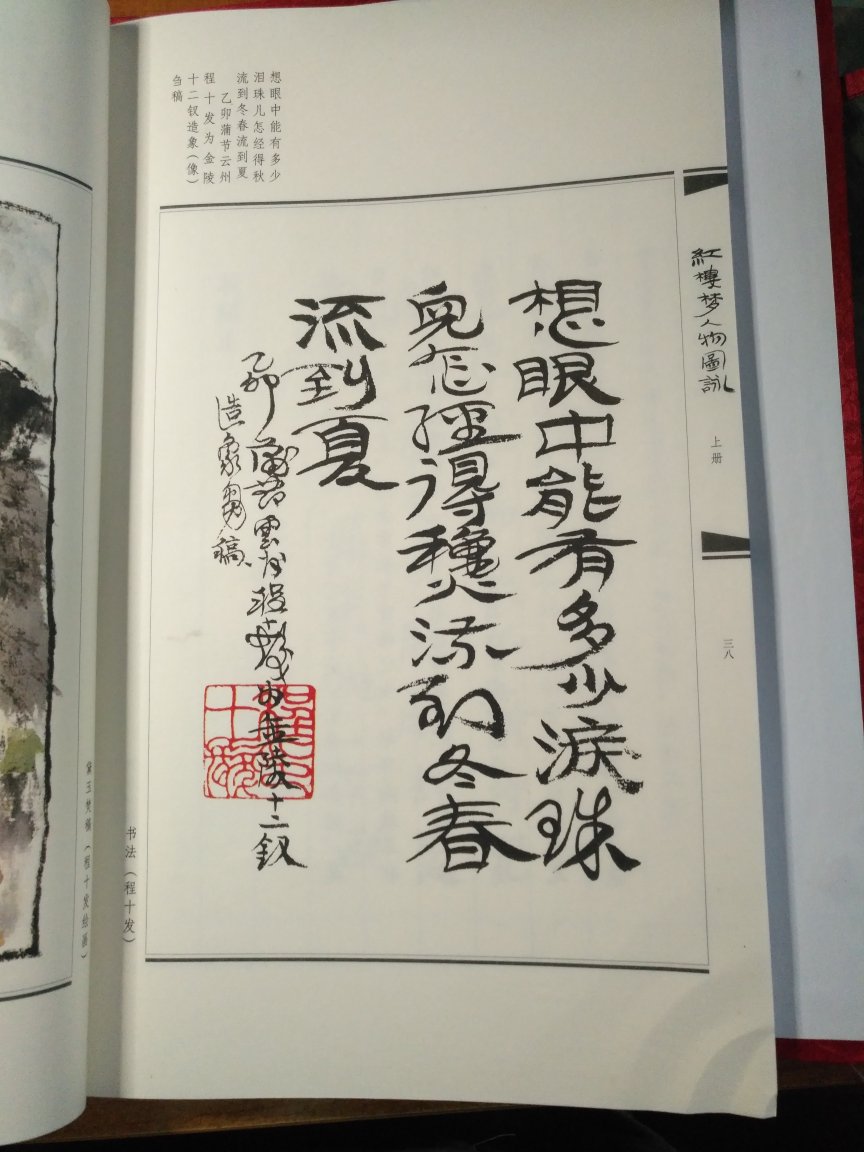 紅樓梦人物圖詠
上册
三八
想眼中能有多少
泪珠儿怎经得秋
流到冬春流到夏
乙卯蒲节云州
程十发为金陵
十二钗造象(像)
刍稿
想眼中能有多少淚珠
兒怎經得穐流到冬春
流到夏
乙卯蒲节雲州程十發為金陵十二釵
造象芻稿
程十發
书法(程十发)
黛玉焚稿(程十发绘画)